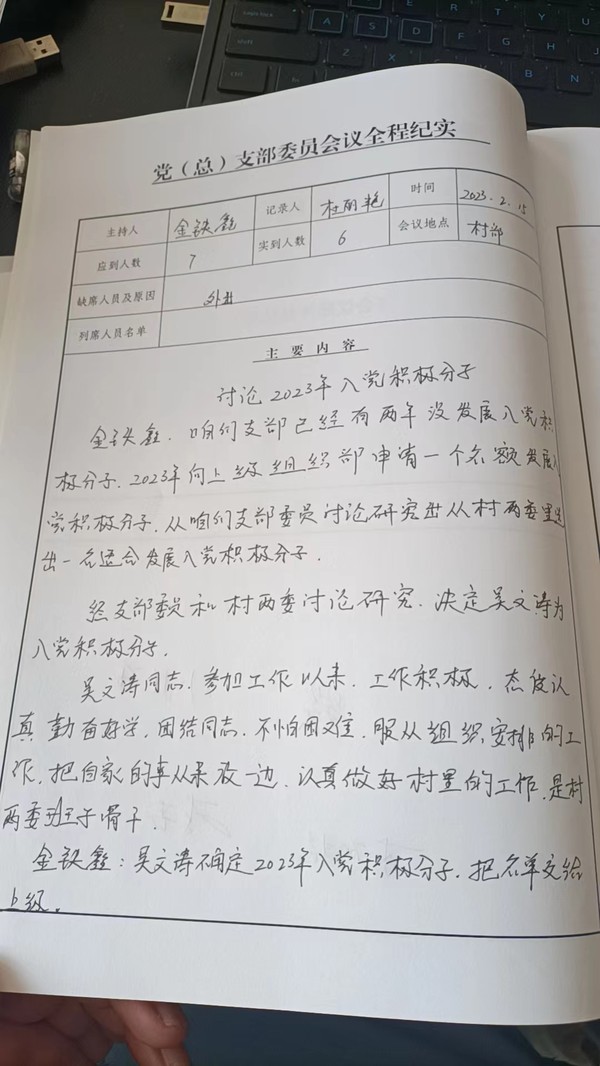 党（总）支部委员会议全程纪实
主持人 金铁鑫 记录人 杜丽艳 时间 2023.2.15
应到人数 7 实到人数 6 会议地点 村部
缺席人员及原因 外出
列席人员名单
主要内容
讨论2023年入党积极分子
金铁鑫．咱们支部已经有两年没发展入党积
极分子．2023年向上级组织部申请一个名额发展入
党积极分子．从咱们支部委员讨论研究出从村两委里选
出一名适合发展入党积极分子．
经支部委员和村两委讨论研究．决定吴文涛为
入党积极分子．
吴文涛同志．参加工作以来．工作积极．态度认
真勤奋好学．团结同志．不怕困难．服从组织安排的工
作．把自家的事从来放一边．认真做好村里的工作．是村
两委班子骨干．
金铁鑫：吴文涛确定2023年入党积极分子．把名单交给
上级。